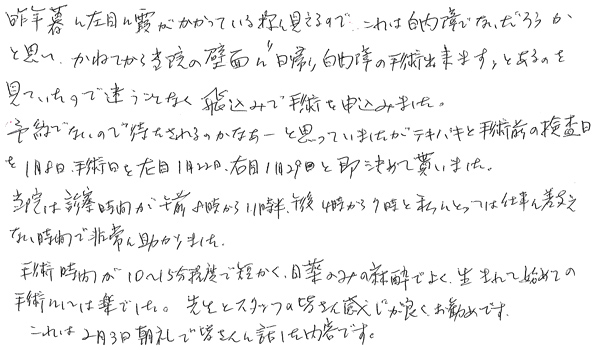 昨年暮に左目に霞がかかっている様に見えるので、これは白内障でないだろうか
と思い、かねてから当院の壁面に"日帰り白内障の手術出来ます"とあるのを
見ていたので迷うことなく飛込みで手術を申込みました。
予約でないので待たされるのかなあーと思っていましたがテキパキと手術前の検査日
を1月8日、手術日を左目1月22日、右目1月29日と即決めて貰いました。
当院は診察時間が午前8時から11時半、午後4時から7時と私にとっては仕事に差支え
ない時間で非常に助かりました。
手術時間が10〜15分程度で短かく、目薬のみの麻酔でよく、生まれて始めての
手術にしては楽でした。先生とスタッフの皆さん感じが良く、お勧めです。
これは2月3日朝礼で皆さんに話した内容です。